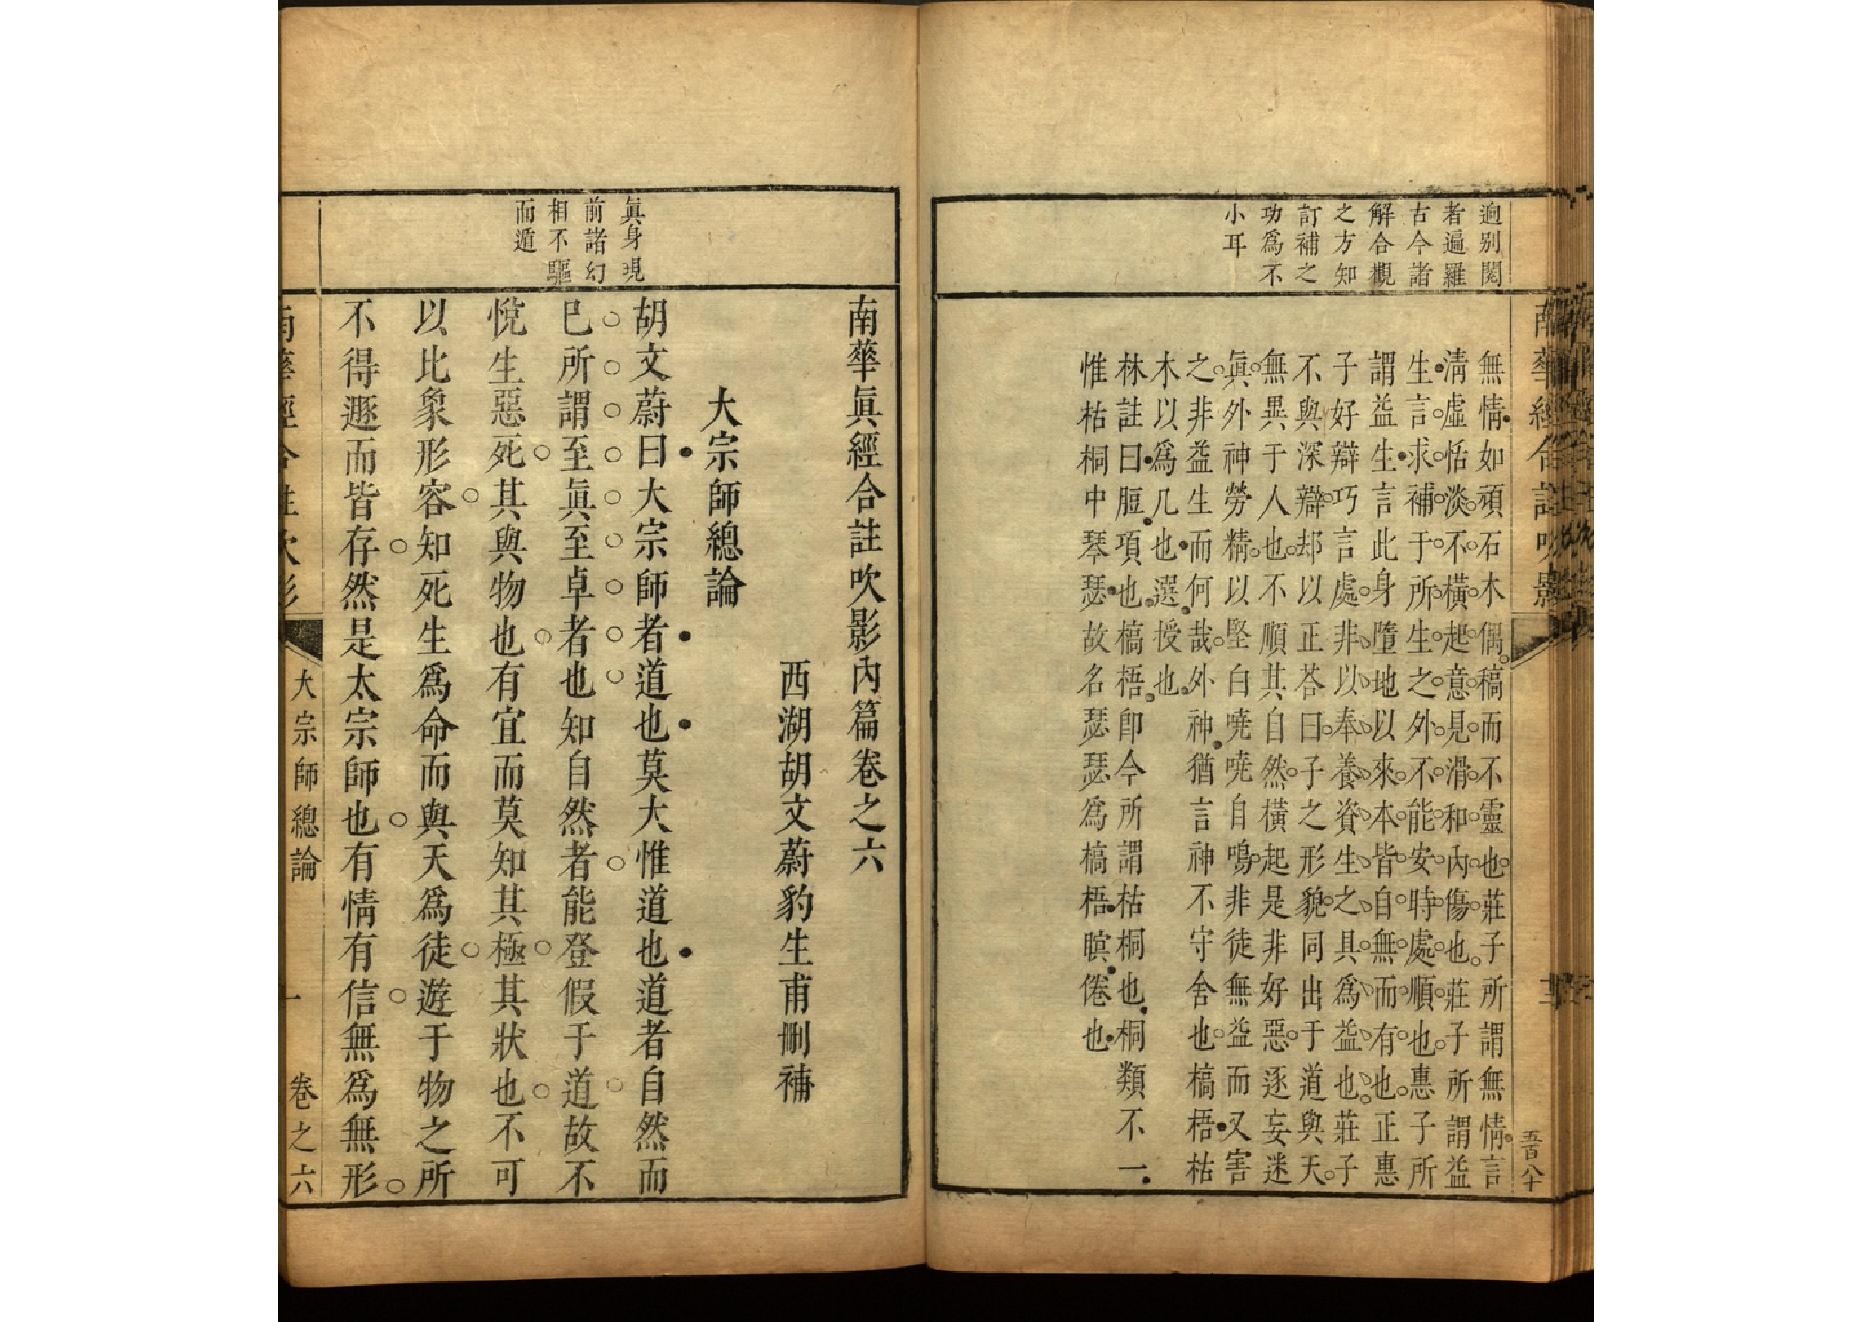 逈别閱
者遍羅
古今諸
解合觀
之方知
訂補之
功爲不
小耳
無情如頑石木偶稿而不靈也莊子所謂無情言
淸虛恬淡不橫起意見滑和內傷也莊子所謂益
生言求補于所生之外不能安時處順也惠子所
謂益生言此身墮地以來本皆自無而有也正惠
子好辯巧言處非以奉養資生之具爲益也莊子
不與深辯却以正荅曰子之形貌同出于道與天
無異于人也不順其自然橫起是非好惡逐妄迷
眞外神勞精以堅白嘵嘵自鳴非徒無益而又害
之非益生而何哉外神猶言神不守舍也槁梧枯
木以爲几也選授也
林註曰脰項也槁梧卽今所謂枯桐也桐類不一
惟枯桐中琴瑟故名瑟瑟爲槁梧瞑倦也
五百八十
南華眞經合註吹影內篇卷之六
西湖胡文蔚豹生甫刪補
大宗師總論
眞身現
前諸幻
相不驅
而遁
胡文蔚曰大宗師者道也莫大惟道也道者自然而
已所謂至眞至卓者也知自然者能登假于道故不
悅生惡死其與物也有宜而莫知其極其狀也不可
以比象形容知死生爲命而與天爲徒遊于物之所
不得遯而皆存然是太宗師也有情有信無爲無形
大宗師總論
一
卷之六